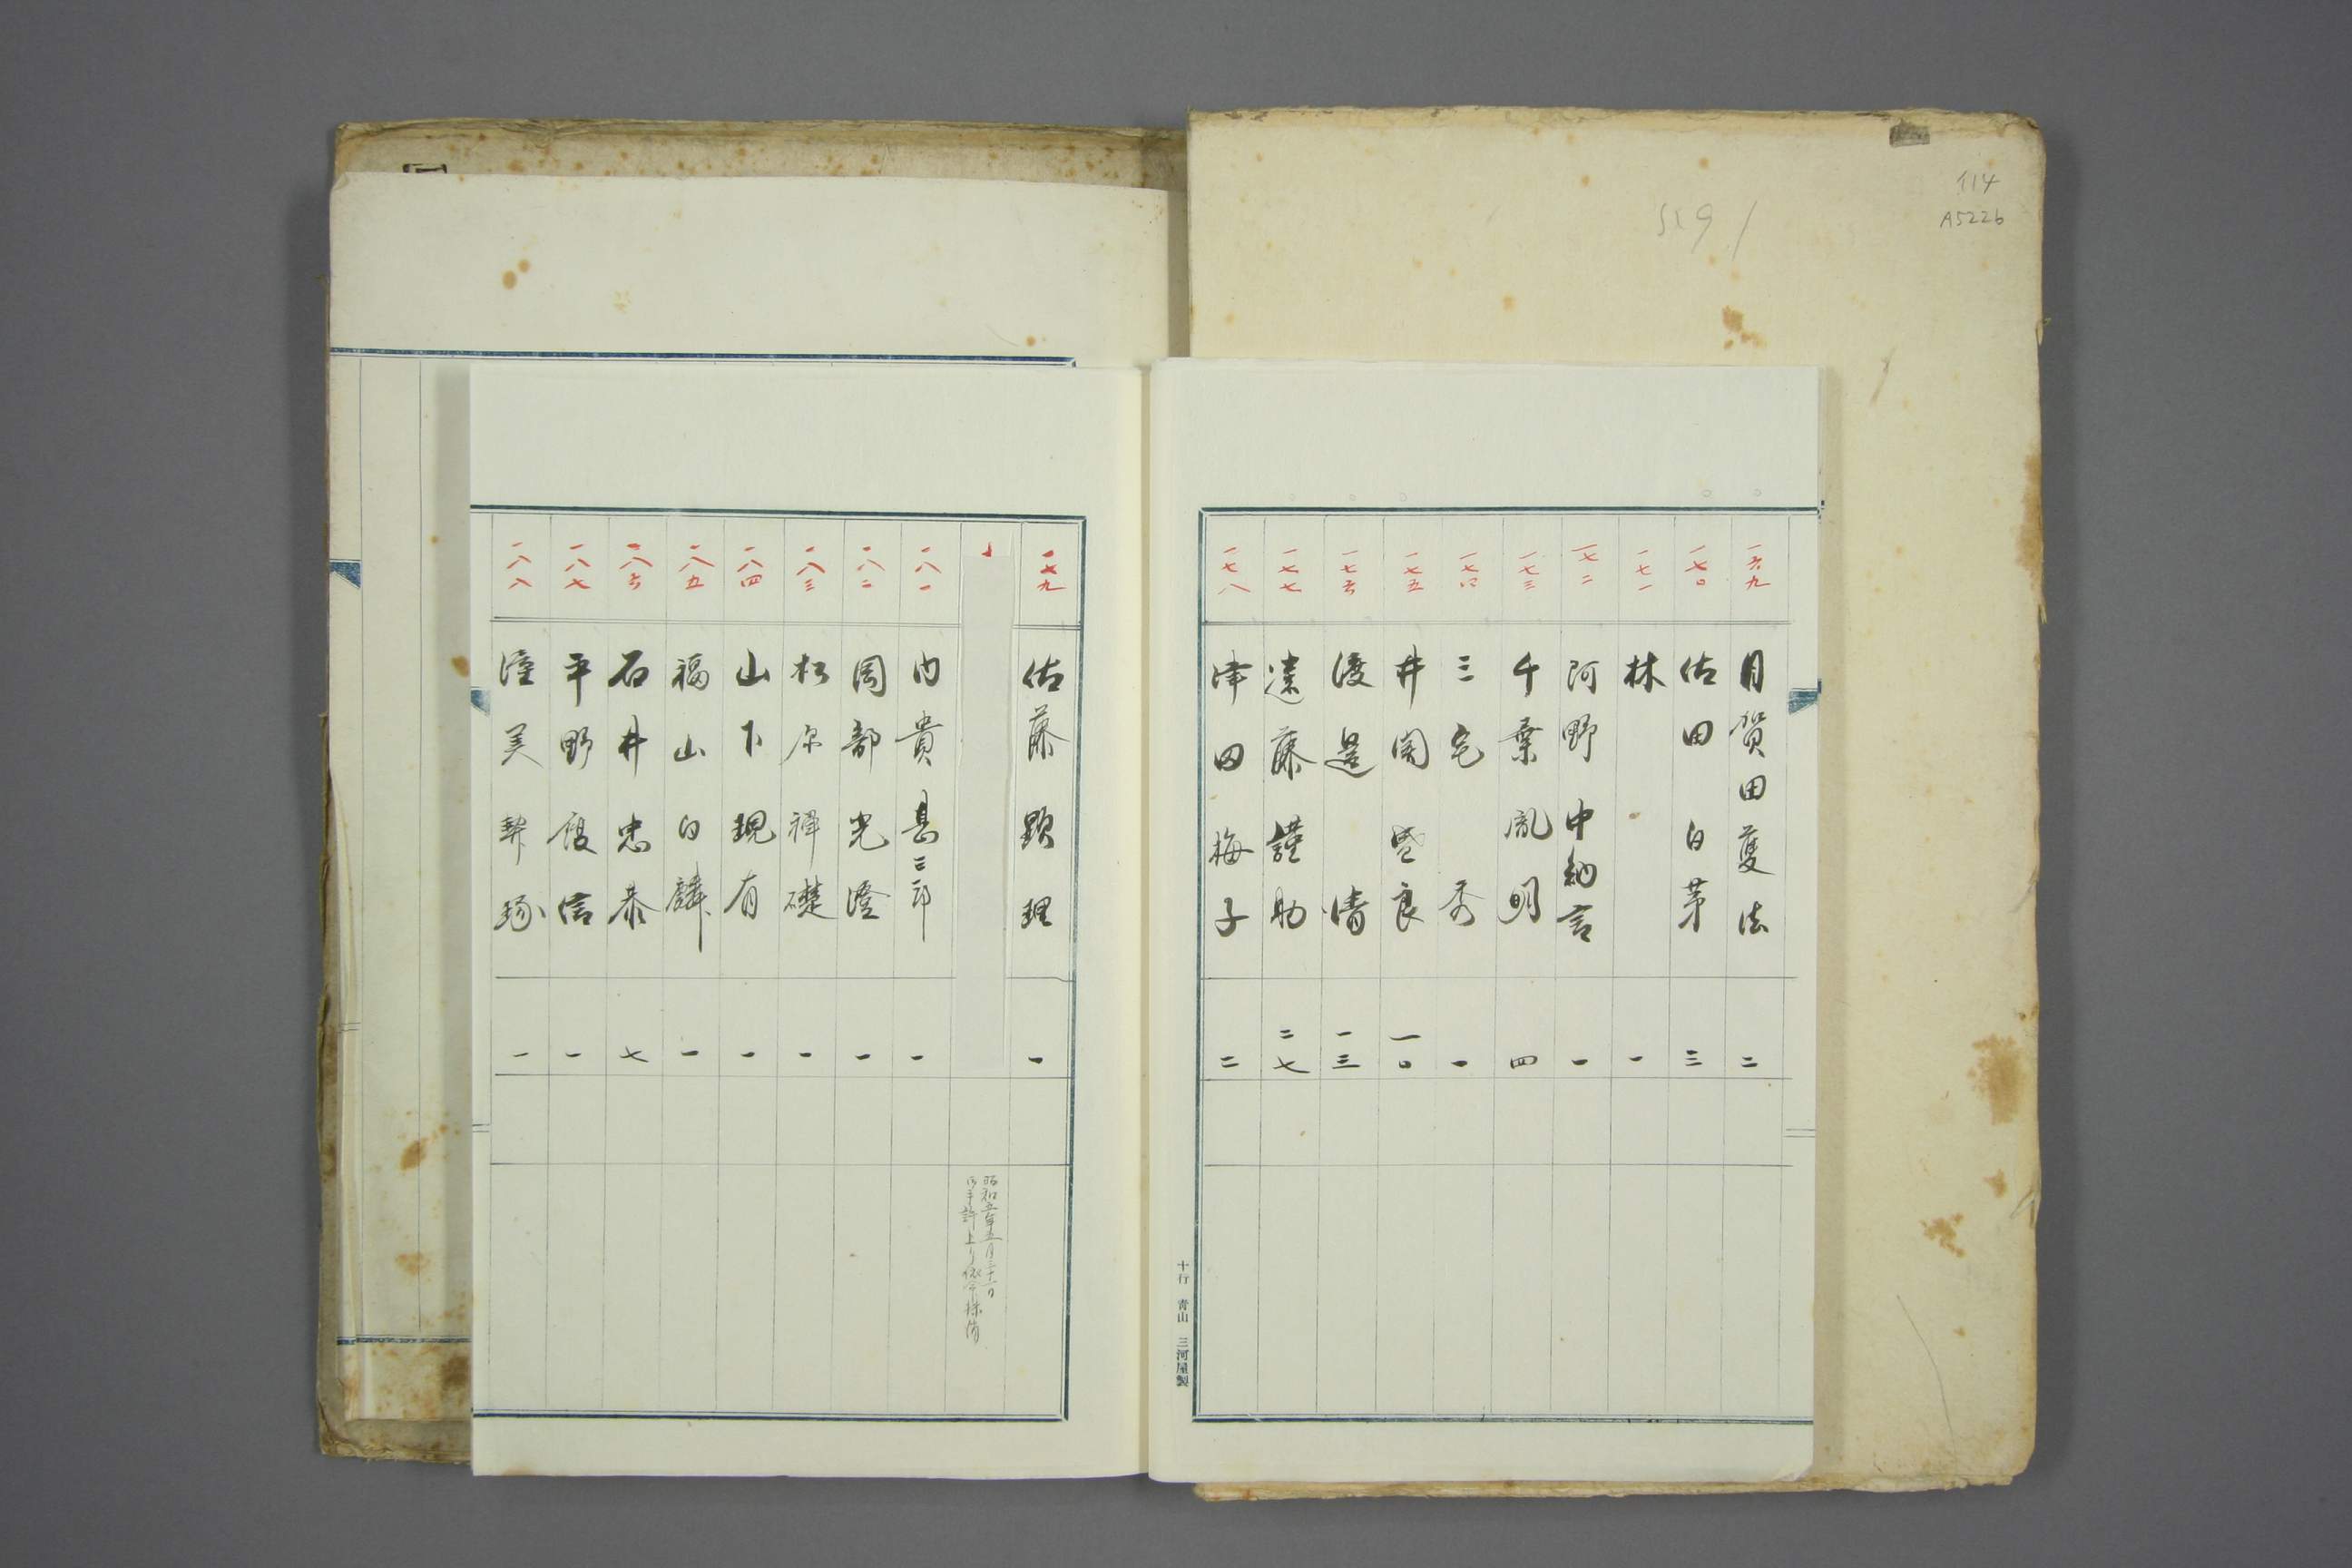 114
A5226
一六九 月賀田護法 二
一七〇 佐田白茅 三
一七一 林 一
一七二 阿野中納言 一
一七三 千葉胤明 四
一七四 三宅秀 一
一七五 井関盛良 一〇
一七六 渡邊清 一三
一七七 遠藤謹助 二七
一七八 津田梅子 二
十行 青山 三河屋製
一七九 佐藤顕理 一
昭和五年五月三十一日
一八一 内貴甚三郎 一
一八二 岡部光澄 一
一八三 松尓禅礎 一
一八四 山下現有 一
一八五 福山白麟 一
一八六 石井忠恭 七
一八七 平野履信 一
一八八 渥美契 一